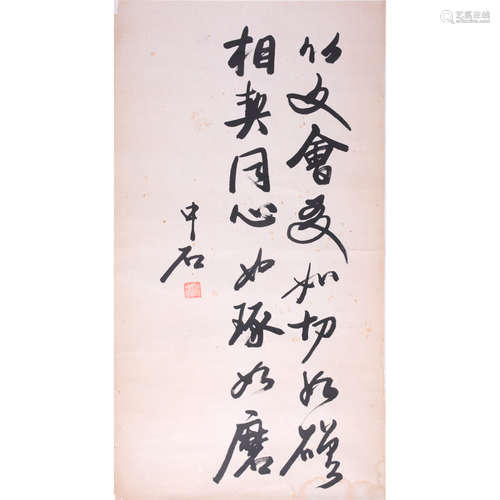 以文會友如切如磋
相契同心如琢如磨
中石